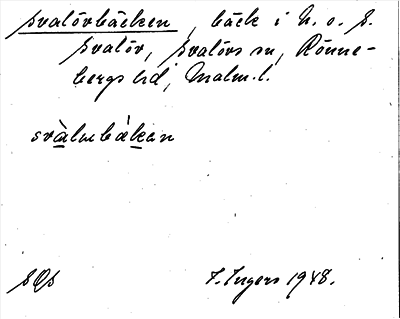 Svalövbäcken, bäck i N. o. S.
Svalöv, Svalövs sn, Rönne-
bergs hd, Malm. l.
svàlubǽkan
SOS
F. Ingers 1948.